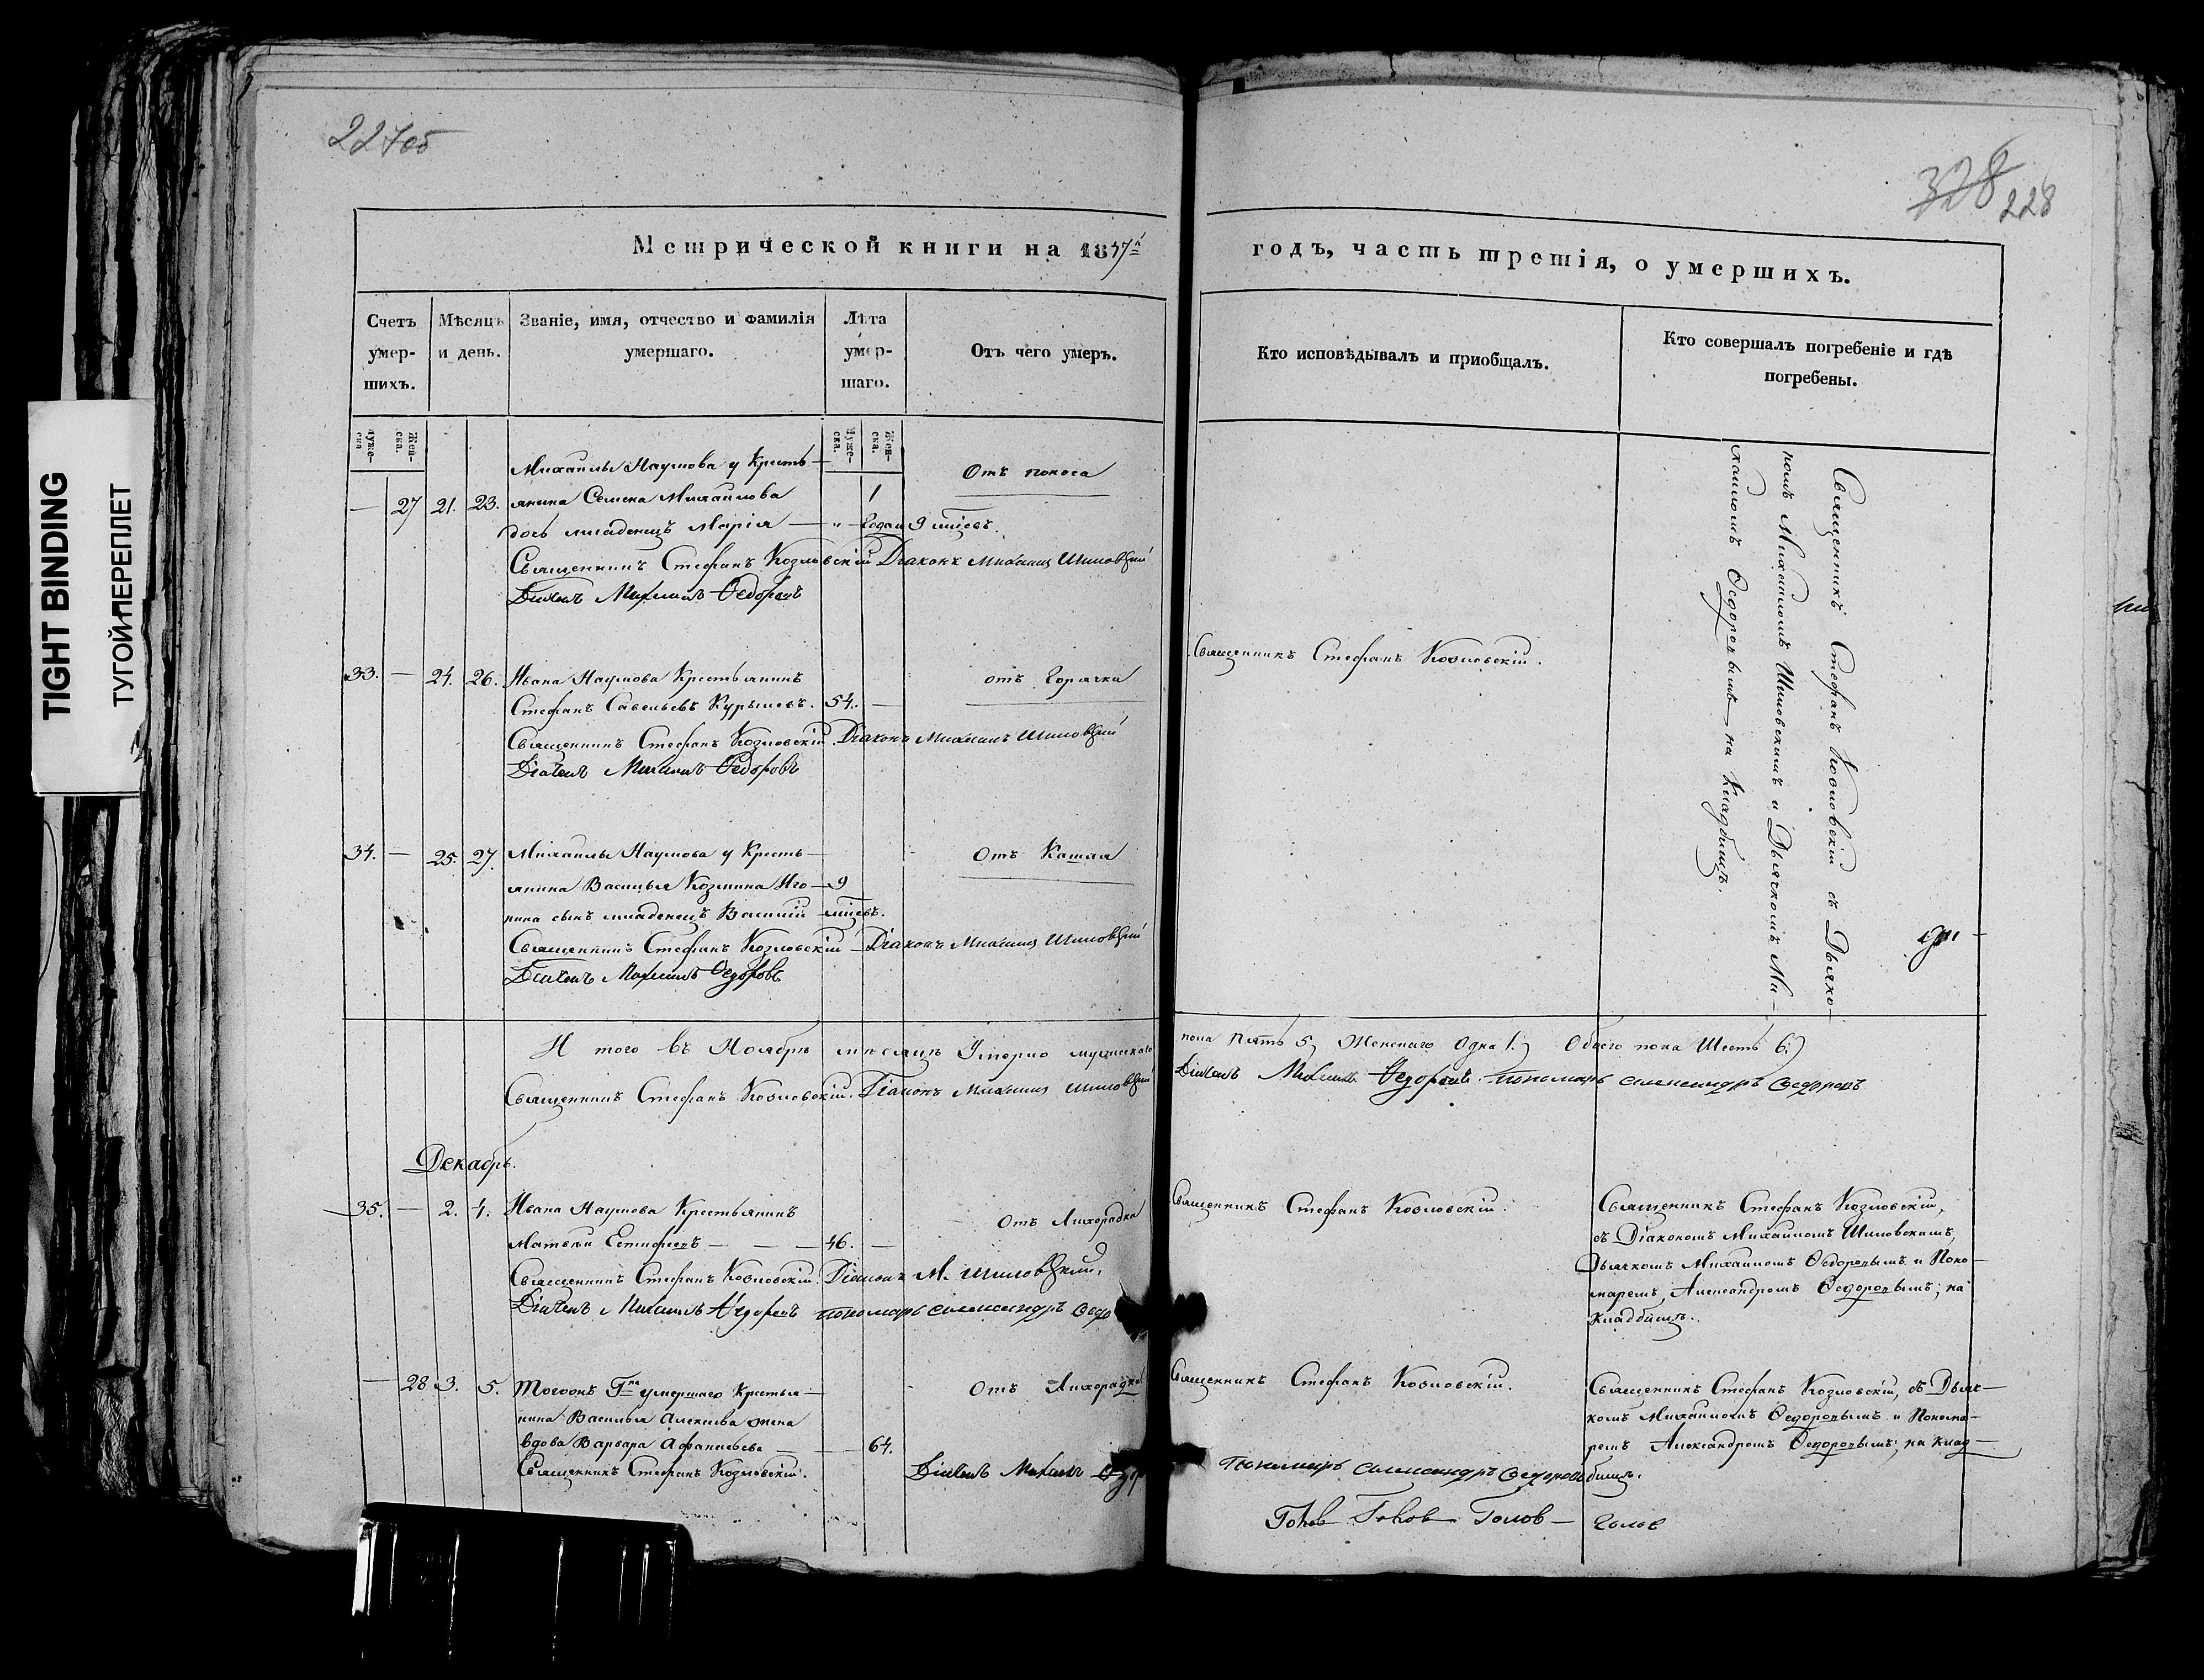 227об
328 228
Метрической книги на 1847й годъ, часть третія, о умершихъ.
Счетъ умер-шихъ.
Мѣсяцъ и день.
Званіе, имя, отчество и фамилія умершаго.
Лѣта умер-шаго.
Отъ чего умеръ.
Кто исповѣдывалъ и пріобщалъ.
Кто совершалъ погребеніе и гдѣ погребены.
Муже-ска
Жен-ска.
Муже-ска.
Жен-ска.
Михаилы Наумова у Кресть-
— 27 21. 23. янина Семена Михаилова 1 Отъ поноса
дочь младенецъ Марія — " — года и 9 мцевъ.
Священникъ Стефанъ Козловскій Діаконъ Михаилъ Шиловскій
Дьячекъ Михаилъ Ѳедоровъ
33. — 24. 26. Ивана Наумова Крестьянинъ отъ Горячки
Стефанъ Савельевъ 54. —
Священникъ Стефанъ Козловскій. Діаконъ Михаилъ Шиловскій
Дьячекъ Михаилъ Ѳедоровъ
34. — 25. 27. Михаилы Наумова у Кресть- Отъ Кашля
янина Василья Козмина Иго- 9
нина сынъ младенецъ Василій мцевъ.
Священникъ Стефанъ Козловскій — Діаконъ Михаилъ Шиловскій
Дьячекъ Михаилъ Ѳедоровъ
И того въ Ноябрѣ мѣсяцѣ Умерло мужескаго
Священникъ Стефанъ Козловскій. Діаконъ Михаилъ Шиловскій
Декабрь.
35. — 2. 4. Ивана Наумова Крестьянинъ Отъ Лихорадки
Матвѣй — — — 46. —
Священникъ Стефанъ Козловскій. Діаконъ М. Шиловскій.
Дьячекъ Михаилъ Ѳедоровъ пономарь Александръ Ѳедо
— 28 3. 5. Тогоонъ Гна умершаго Крестья- Отъ Лихорадки
нина Василья Алексѣева жена
вдова Варвара Афанасьева — — — 64.
Священникъ Стефанъ Козловскій. Дьячекъ Михаилъ Ѳедор
Священникъ Стефанъ Козловскій.
Священникъ Стефанъ Козловскій съ Дьяко-
номъ Михаиломъ Шиловскимъ и Дьячкомъ Ми-
хаиломъ Ѳедоровымъ — на Кладбищѣ.
пола Пять 5, Женскаго Одна 1.) Обоего пола Шесть 6.)
Дьячекъ Михаилъ Ѳедоровъ. пономарь Александръ Ѳедоровъ
Священникъ Стефанъ Козловскій.
Священникъ Стефанъ Козловскій,
съ Діакономъ Михаиломъ Шиловскимъ,
Дьячкомъ Михаиломъ Ѳедоровымъ и Поно-
маремъ, Александромъ Ѳедоровымъ; на
Кладбищѣ.
Священникъ Стефанъ Козловскій.
Священникъ Стефанъ Козловскій, съ Дьяч-
комъ Михаиломъ Ѳедоровымъ и Понома-
ремъ Александромъ Ѳедоровымъ; на клад-
бищѣ.
Пономарь Александръ Ѳедоровъ
TIGHT BINDING
ТУГОЙ ПЕРЕПЛЕТ